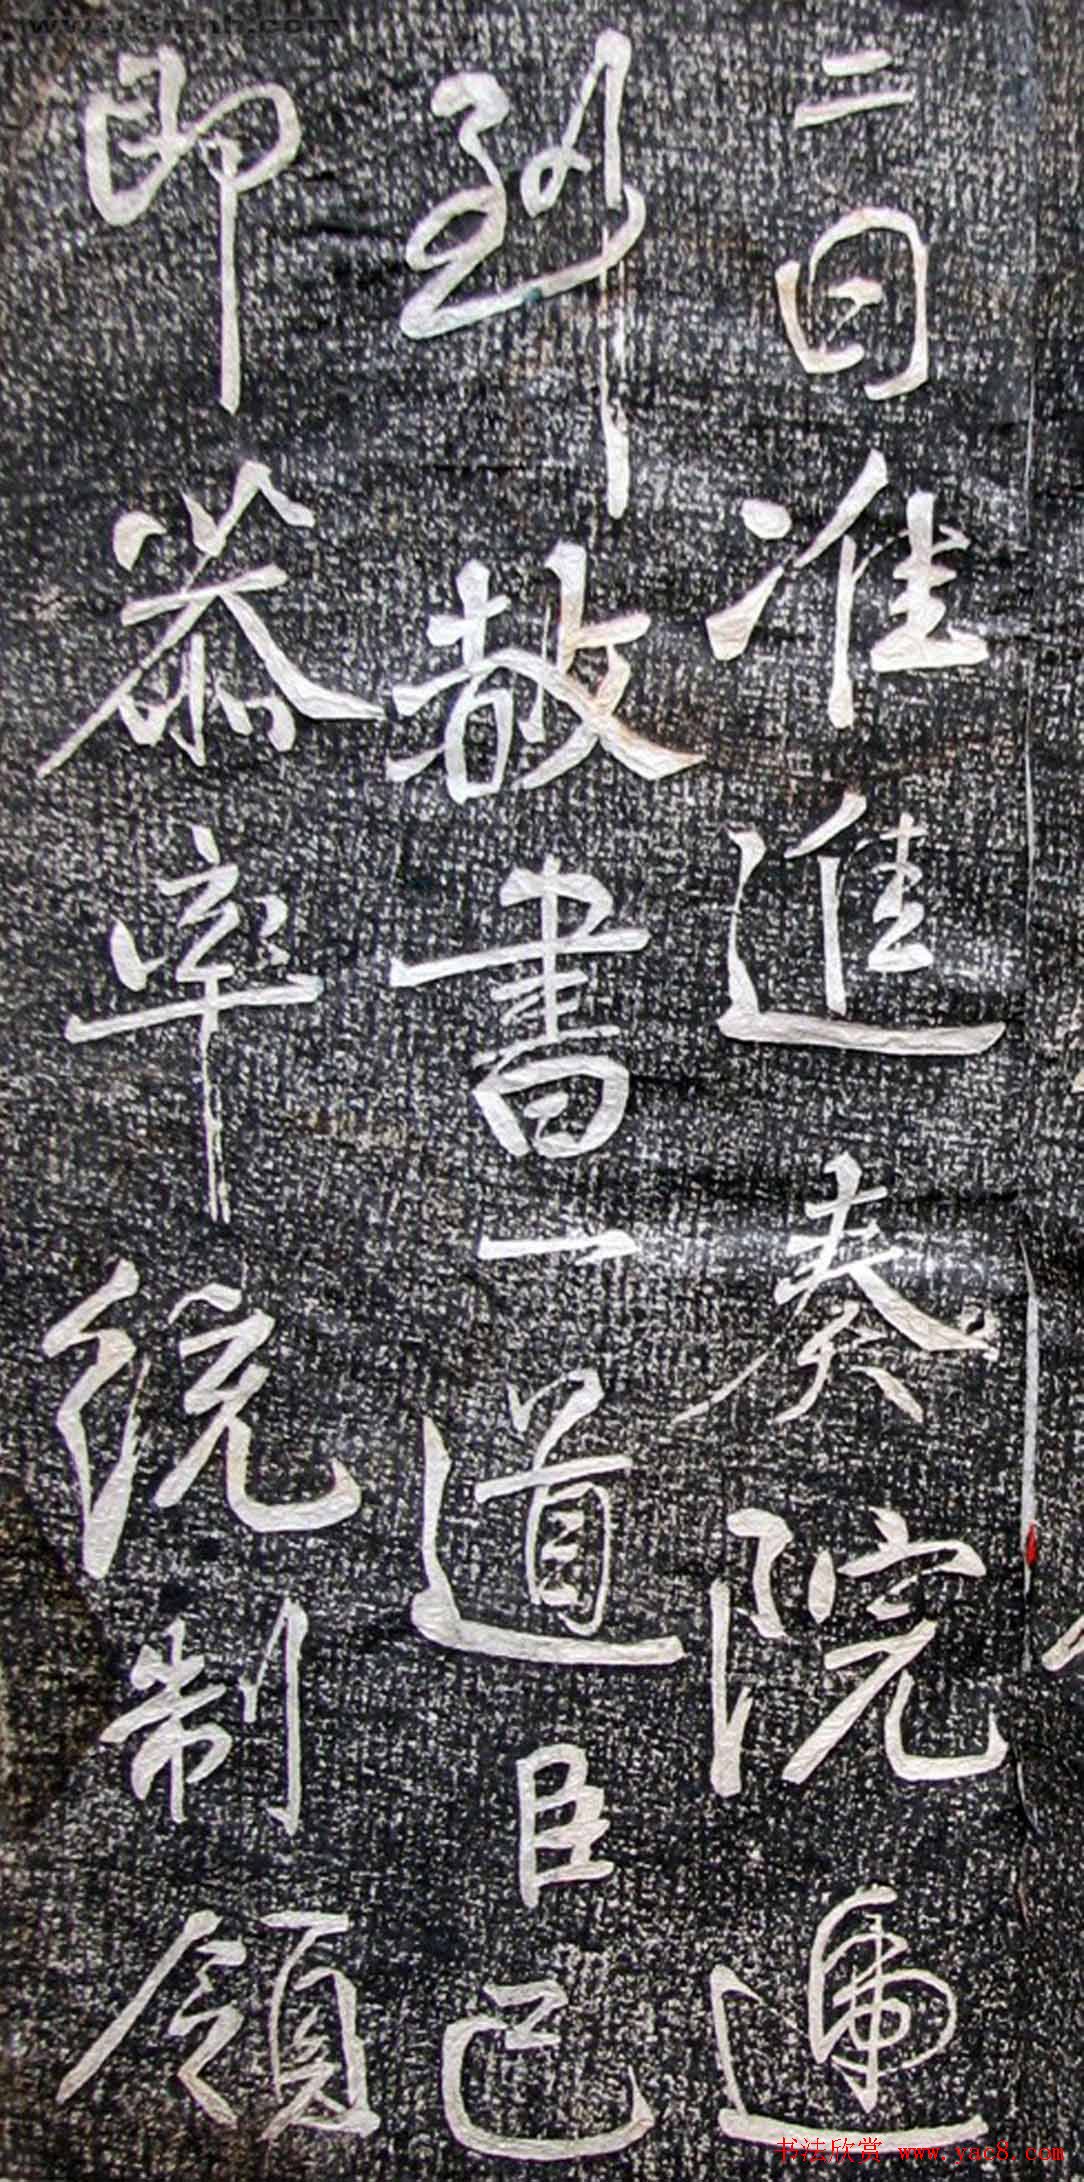 二日准進奏院遞
到赦書一道臣已
即恭率統制領
书法欣赏 www.yac8.com